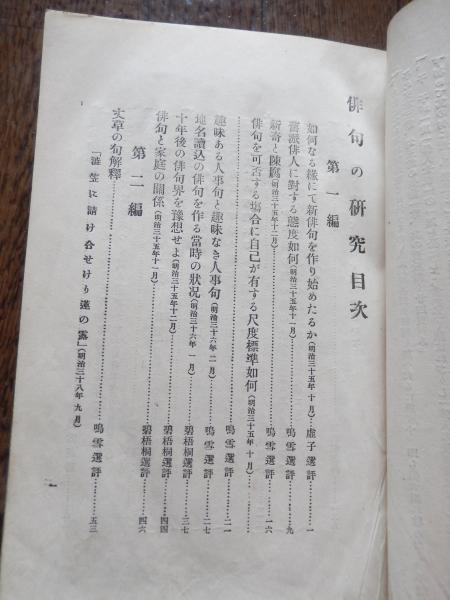 俳句の研究目次
第一編
如何なる縁にて新俳句を作り始めたるか(明治三十五年十月)……虚子選評……一
舊派俳人に對する態度如何(明治三十五年十一月)……鳴雪選評……九
新奇と陳腐(明治三十五年十二月)……鳴雪選評……一六
俳句を可否する場合に自己が有する尺度標準如何(明治三十五年十月)
……鳴雪選評……二一
趣味ある人事句と趣味なき人事句(明治三十六年二月)……鳴雪選評……二七
地名讀込の俳句を作る當時の狀況(明治三十六年一月)……碧梧桐選評……三七
十年後の俳句界を豫想せよ(明治三十五年十二月)……碧梧桐選評……四四
俳句と家庭の關係(明治三十五年十一月)……碧梧桐選評……四六
第二編
丈草の句解釋
「澁笠に請け合せけり蓮の露」(明治三十八年九月)……鳴雪選評……五三
一